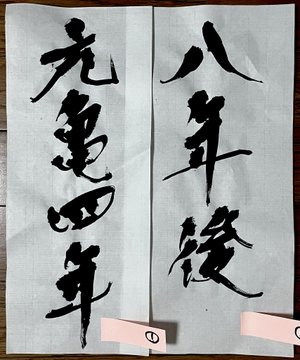 八年後
元亀四年